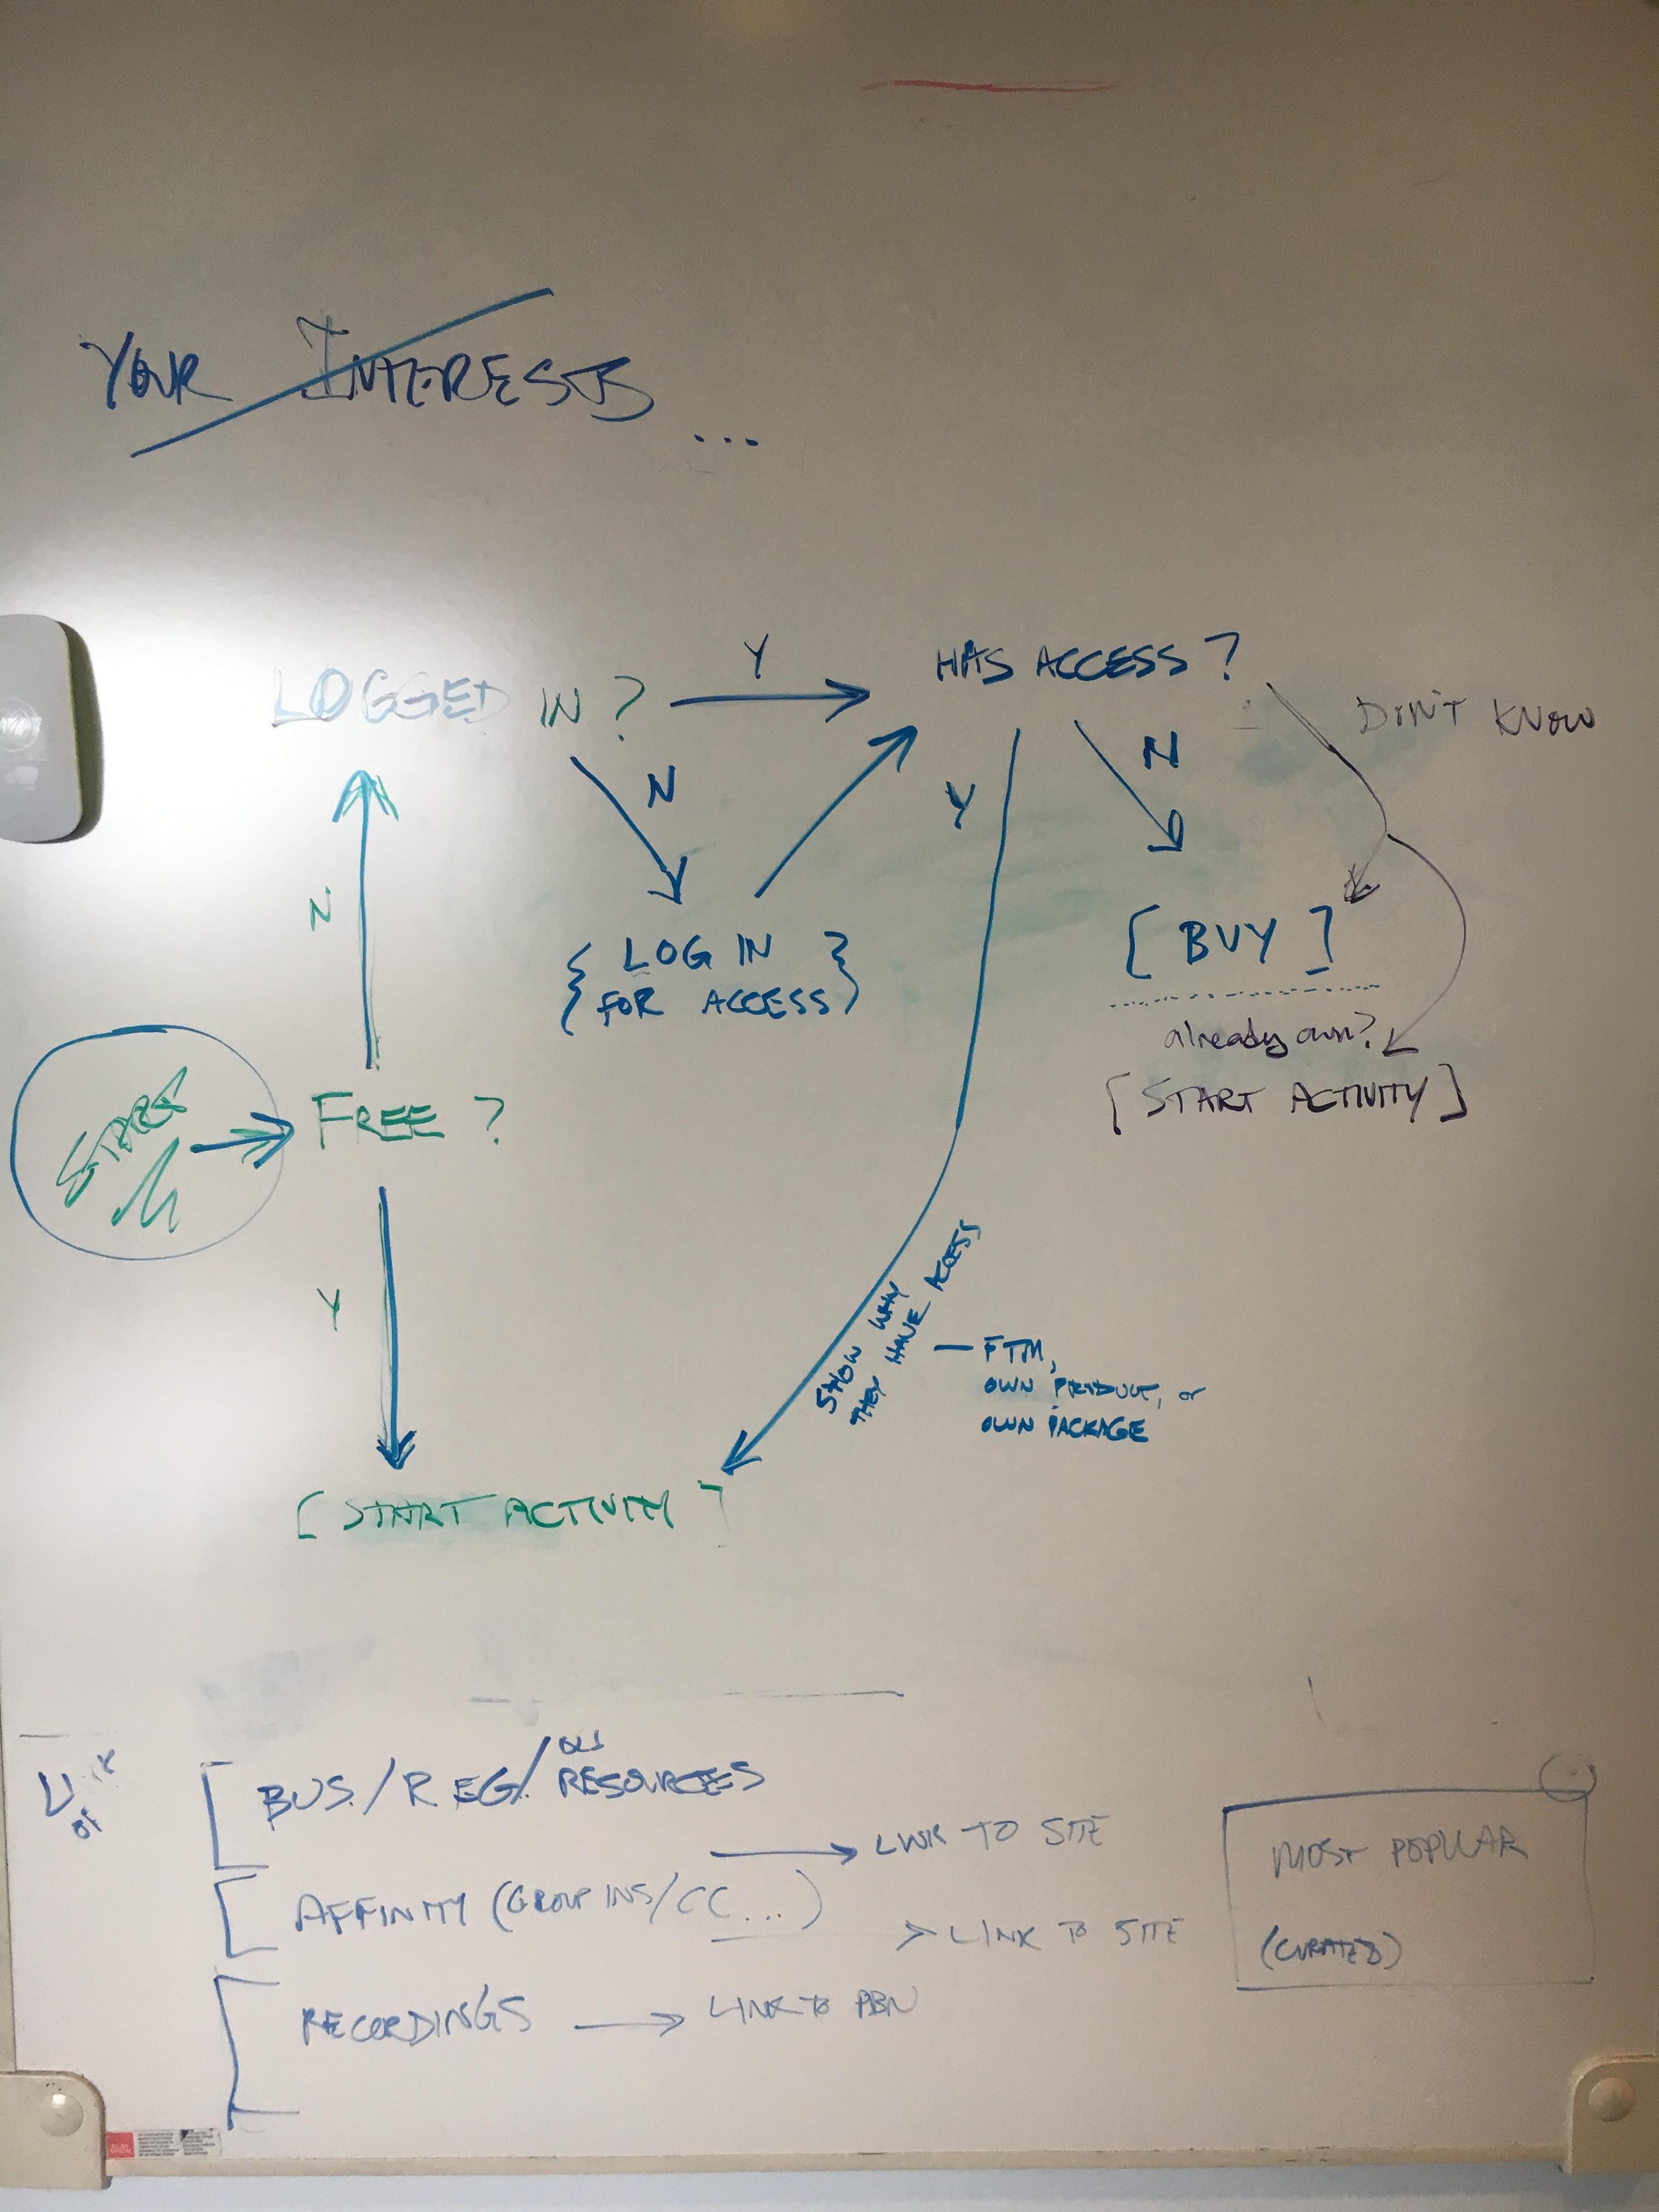 YOUR INTERESTS ...
LOGGED IN ?
Y
HAS ACCESS ?
DON'T KNOW
N
Y
N
N
{ LOG IN
FOR ACCESS }
[ BUY ]
already own?
[ START ACTIVITY ]
START
FREE ?
Y
SHOW WHY
THEY HAVE ACCESS
— FTM,
OWN PRODUCT, or
OWN PACKAGE
[ START ACTIVITY ]
U of
BUS./REG/ RESOURCES
→ LINK TO SITE
AFFINITY (GROUP INS/CC...)
> LINK TO SITE
RECORDINGS → LINK TO PBN
MOST POPULAR
(CURATED)